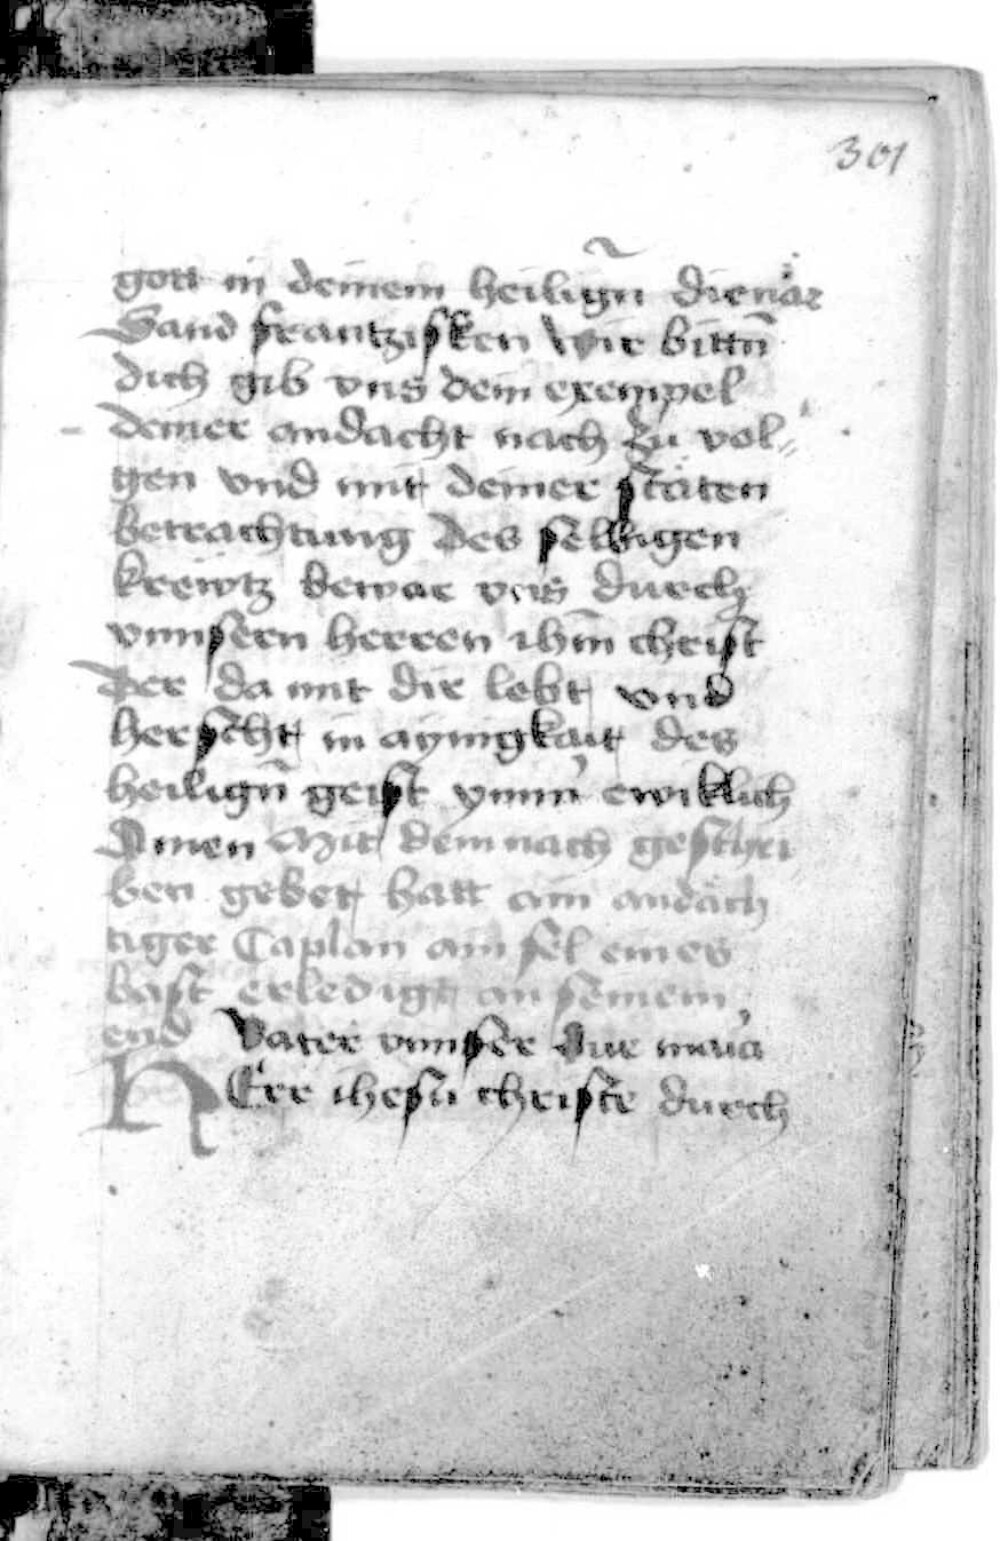 301
gott in deinem heilign̄ dienär
Sand frantzisken wir bittn̄
dich gib vns dein exempel
deiner andacht nach zu vol„
gen vnd mit deiner stäten
betrachtung des selbigen
krewtz bewar vns durch
vnnsern herren ihm̄ christ
der da mit dir lebt vnd
herscht in aynigkait des
heilign̄ geist ymm̄ ewiklich
Amen Mit dem nach geschri
ben gebet hatt ain andäch
tiger Caplan ain sel eines
bast erledigt an seinem
end Vater vnnser Aue maria
HErr ihesu christe durch